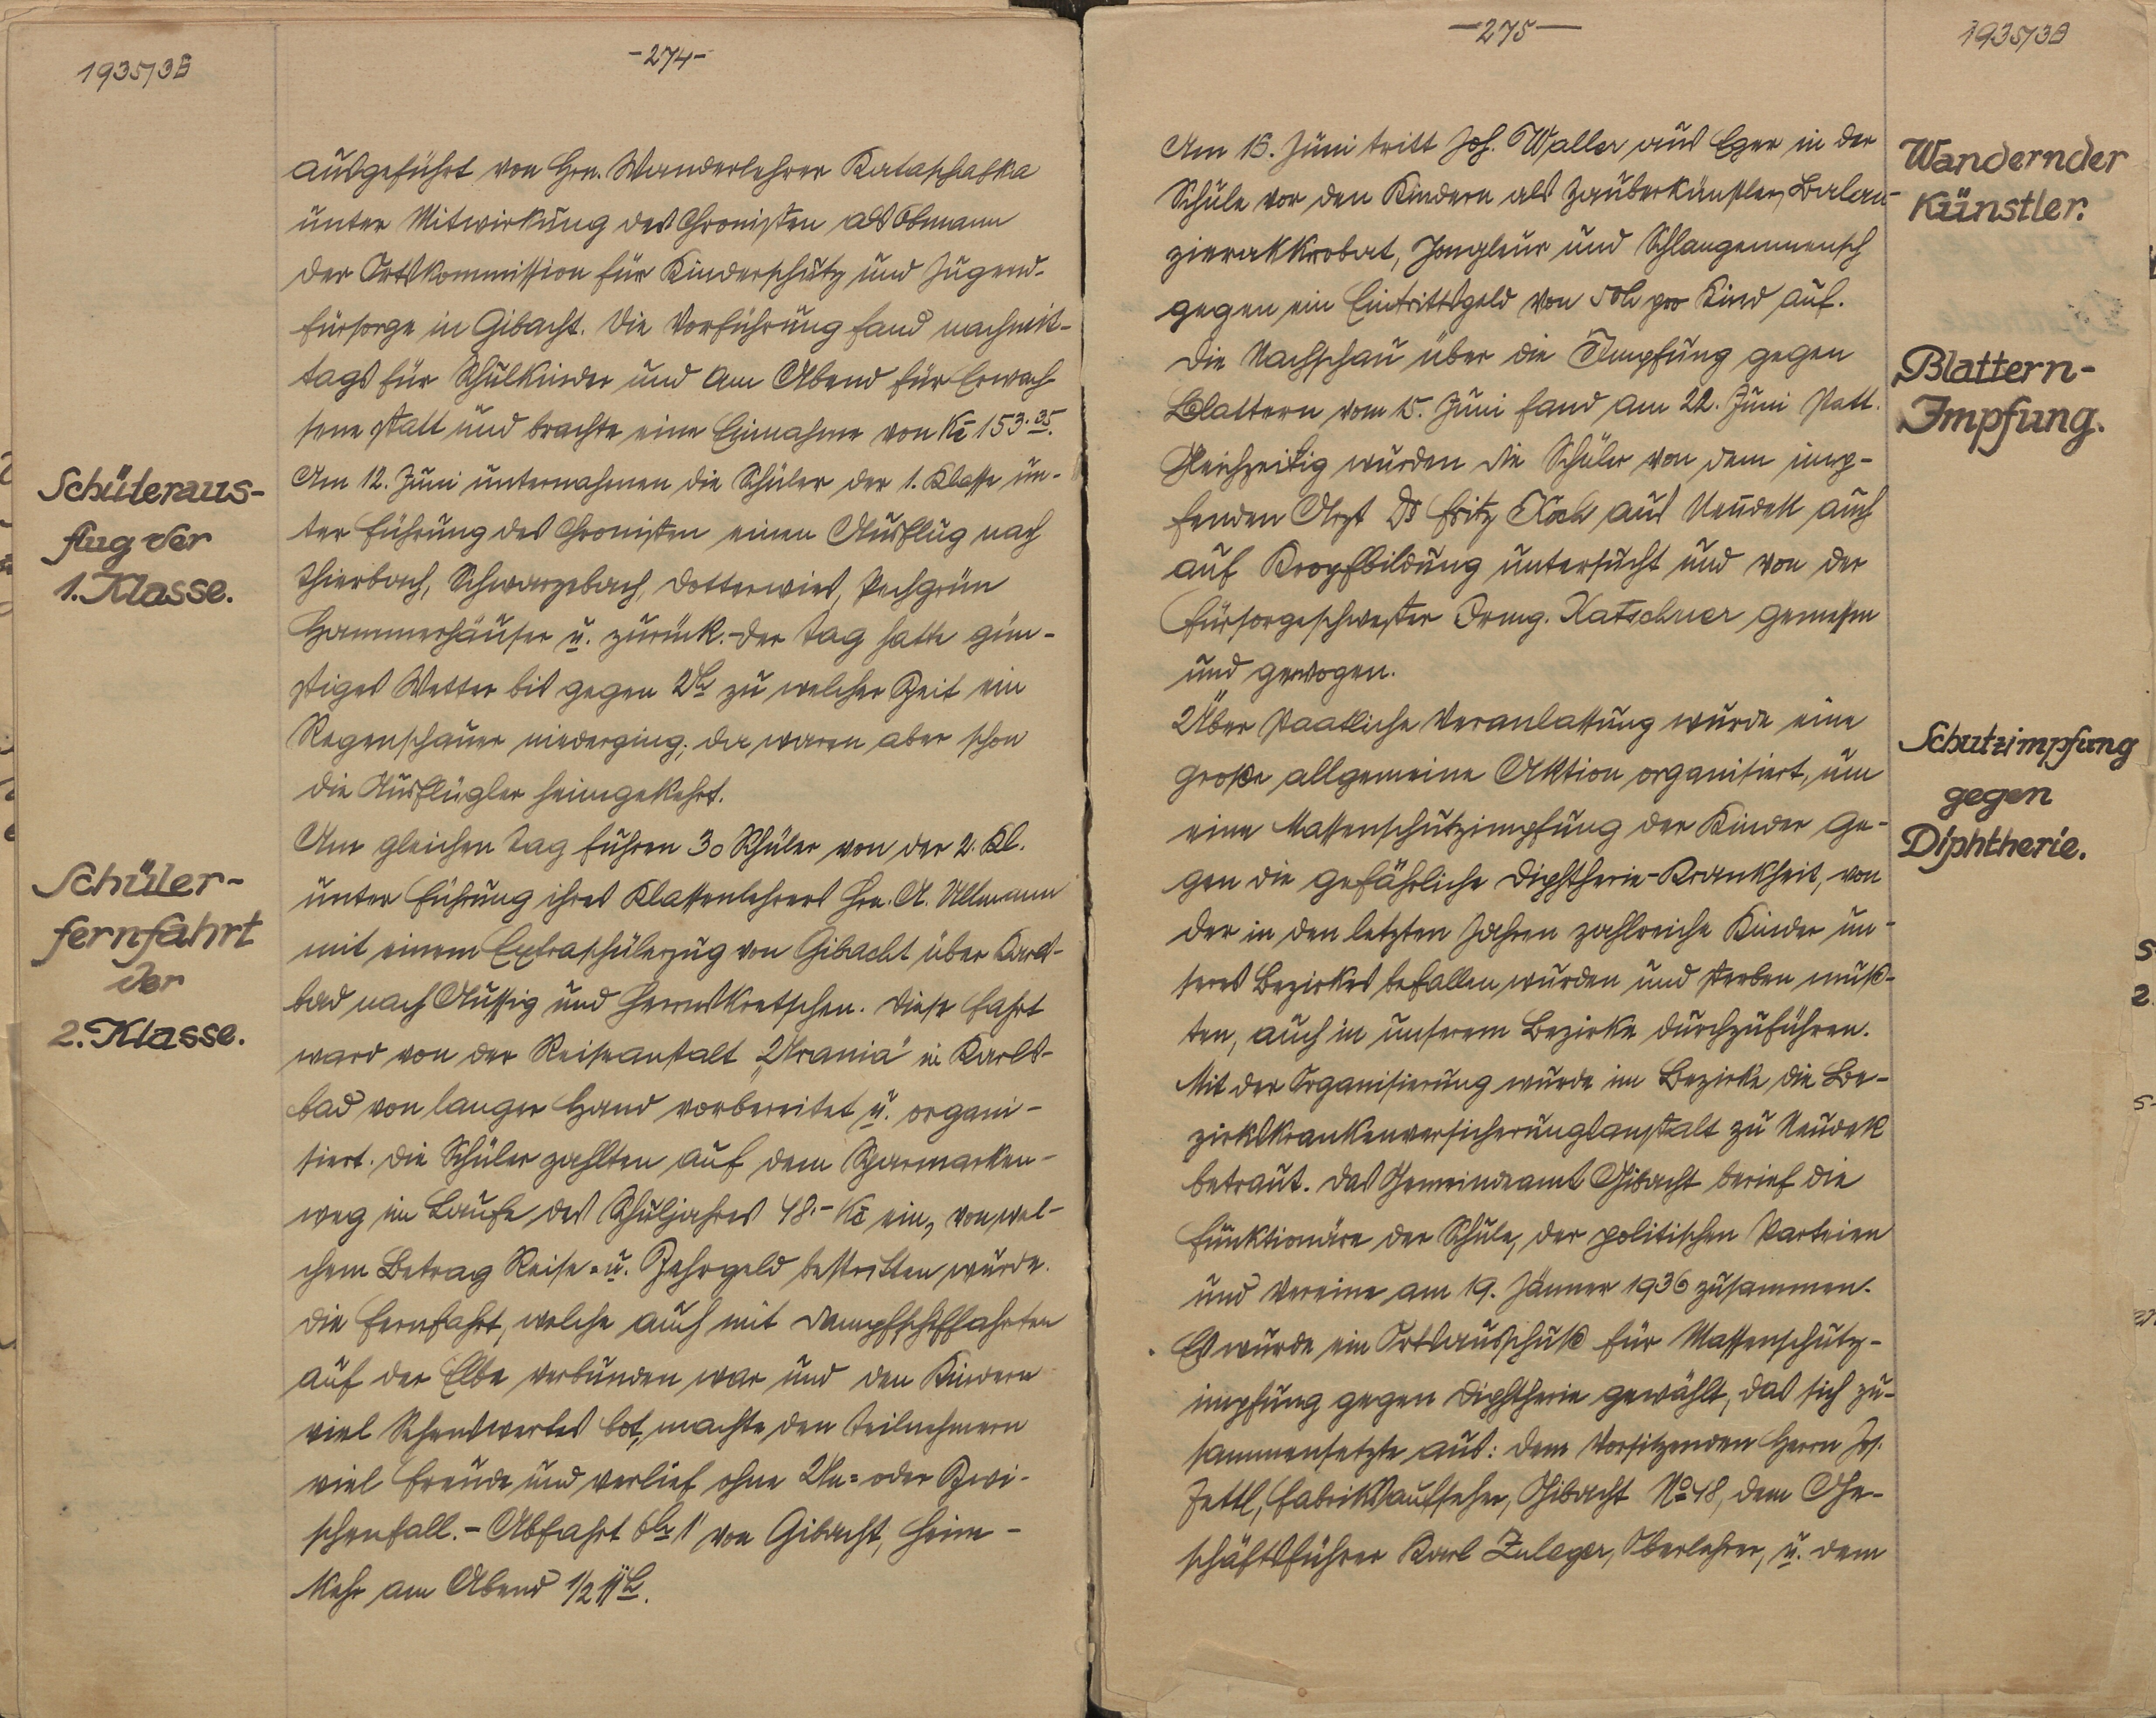 1935/36
-274-
ausgeführt von Hrn. Wanderlehrer Kataschafka
unter Mitwirkung des Chronisten als Obmann
der Ortskommission für Kinderschutz und Jugend-
fürsorge in Gibacht. Die Vorführung fand nachmit-
tags für Schulkinder und am Abend für Erwach-
sene statt und brachte eine Einnahme von Kč 153.35.
Schüleraus-
flug der
1. Klasse.
Am 12. Juni unternahmen die Schüler der 1. Klasse un-
ter Führung des Chronisten einen Ausflug nach
Thierbach, Schwarzebach, Dotterwies, Pechgrün
Hammerhäuser u. zurück.-Der Tag hatte gün-
stiges Wetter bis gegen 2h zu welcher Zeit ein
Regenschauer niederging; da waren aber schon
die Ausflügler heimgekehrt.
Schüler-
fernfahrt
der
2. Klasse.
Am gleichen Tag fuhren 30 Schüler von der 2. Kl.
unter Führung ihres Klassenlehrers Hrn. A. Ullmann
mit einem Extraschülerzug von Gibacht über Karls-
bad nach Aussig und Herrnskretschen. Diese Fahrt
ward von der Reiseanstalt „Urania" in Karls-
bad von langer Hand vorbereitet u. organi-
siert. Die Schüler zahlten auf dem Sparmarken-
weg im Laufe des Schuljahres 48.- Kč ein, von wel-
chem Betrag Reise- u. Zehrgeld bestritten wurde.
Die Fernfahrt, welche auch mit Dampfschiffahrten
auf der Elbe verbunden war und den Kindern
viel Sehenswertes bot, machte den Teilnehmern
viel Freude und verlief ohne Un- oder Zwi-
schenfall.- Abfahrt 6h 1' von Gibacht, Heim-
kehr am Abend 1/2 11h.
-275-
1935/36
Wandernder
Künstler.
Am 16. Juni tritt Joh. Waller aus Eger in der
Schule vor den Kindern als Zauberkünstler, Balan-
zierakkrobat, Jongleur und Schlangenmensch
gegen ein Eintrittsgeld von 50h pro Kind auf.
Blattern-
Impfung.
Die Nachschau über die Impfung gegen
Blattern vom 15. Juni fand am 22. Juni statt.
Gleichzeitig wurden die Schüler von dem imp-
fenden Arzt Dr Fritz Koch aus Neudek auch
auf Kropfbildung untersucht und von der
Fürsorgeschwester Irmg. Katschner gemessen
und gewogen.
Schutzimpfung
gegen
Diphtherie.
Über staatliche Veranlassung wurde eine
große allgemeine Aktion organisiert, um
eine Massenschutzimpfung der Kinder ge-
gen die gefährliche Diphtherie-Krankheit, von
der in den letzten Jahren zahlreiche Kinder un-
seres Bezirkes befallen wurden und sterben muß-
ten, auch in unserem Bezirke durchzuführen.
Mit der Organisierung wurde im Bezirke die Be-
zirkskrankenversicherungsanstalt zu Neudek
betraut. Das Gemeindeamt Gibacht berief die
Funktionäre der Schule, der politischen Parteien
und Vereine am 19. Jänner 1936 zusammen.
Es wurde ein Ortsausschuß für Massenschutz-
impfung gegen Diphtherie gewählt, das sich zu-
sammensetzte aus: dem Vorsitzenden Herrn Jos.
Zettl, Fabriksaufseher, Gibacht No 48, dem Ge-
schäftsführer Karl Zuleger, Oberlehrer, u. dem